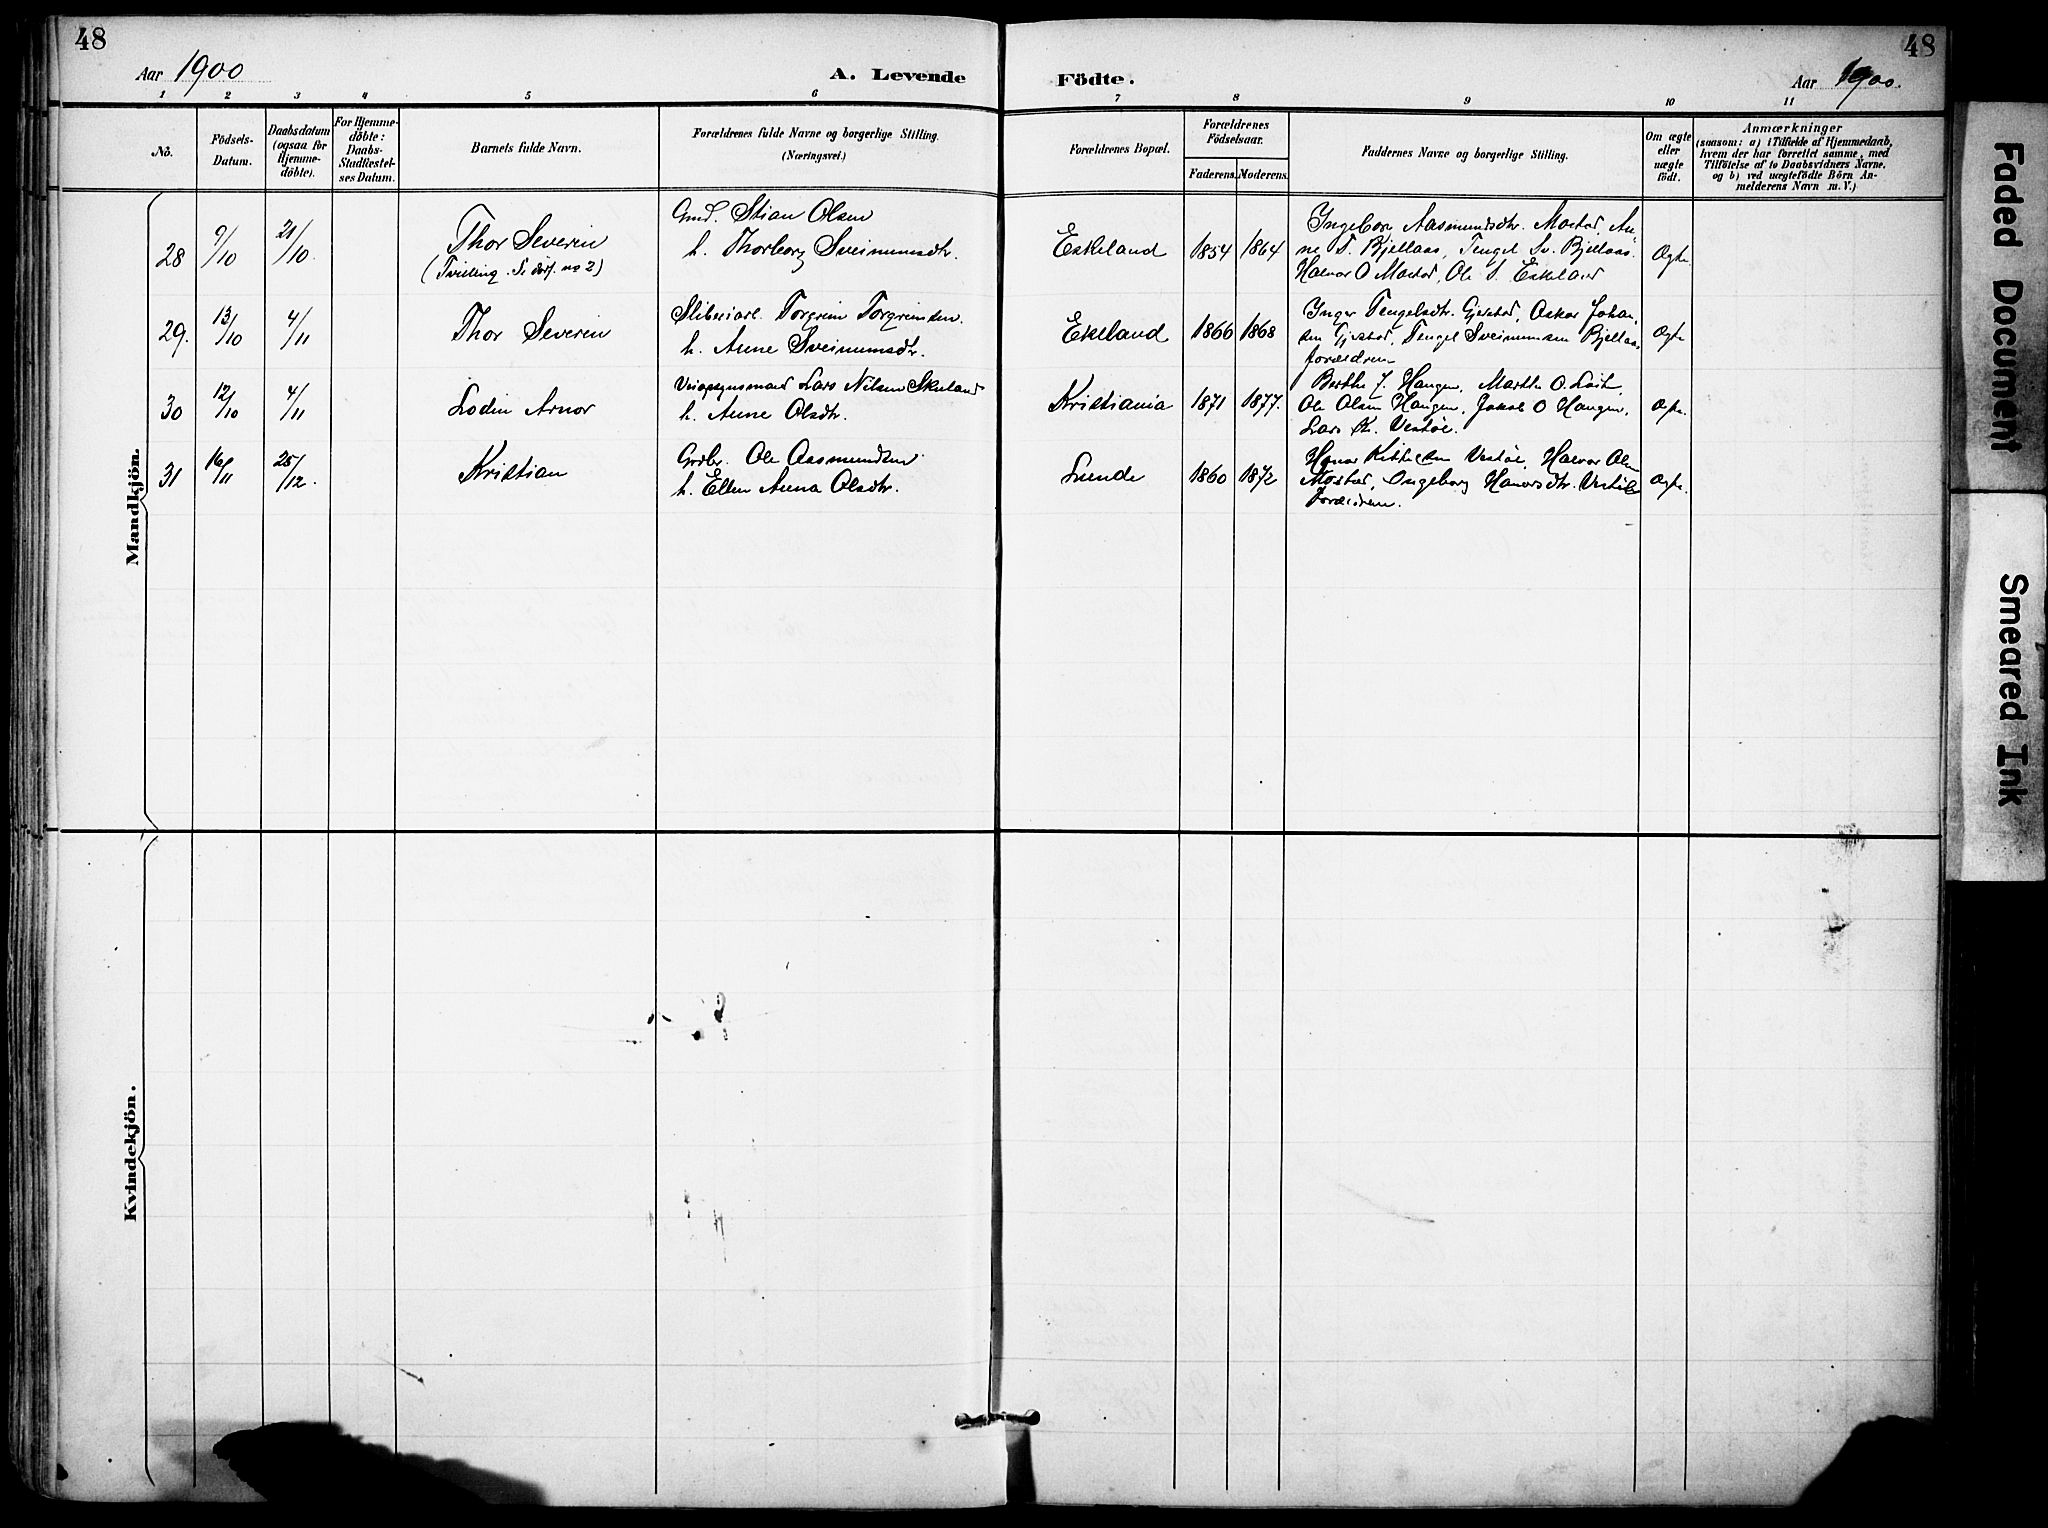 48
48
Aar 1900
A. Levende Födte.
Aar 1900.
1 2 3 4 5 6 7 8 9 10 11
No.
Födsels-
Datum.
Daabsdatum
(ogsaa for
Hjemme-
döbte).
For Hjemme-
döbte:
Daabs-
Stadfæstel-
ses Datum.
Barnets fulde Navn.
Forældrenes fulde Navne og borgerlige Stilling.
(Næringsvei.)
Forældrenes Bopæl.
Forældrenes
Födselsaar.
Faderens. Moderens.
Faddernes Navne og borgerlige Stilling.
Om ægte
eller
uægte
födt.
Anmærkninger
(saasom: a) i Tilfælde af Hjemmedaab,
hvem der har forrettet samme, med
Tilföielse af to Daabsvidners Navne.
og b) ved uægtefödte Börn An-
melderens Navn m. V.)
Mandkjön.
28
9/10
21/10
Thor Severin
(Tvilling. no 2)
Gmd. Stian Olsen
h. Thorborg Sveinumsdtr.
Eskeland
1854
1864
Ingeborg Aasmundsdtr. Mostad, An-
ne T. Bjellaas, Tengel Sv. Bjellaas
Halvor O Mostad, Ole S. Eskeland
Ægte.
29.
13/10
4/11
Thor Severin
Torgrim Torgrimsen.
h. Anne Sveinumsdtr.
Ekeland
1866
1868
Inger Tengelsdtr. Gjerstad, Oskar Johan-
sen Gjerstad, Tengel Sveinumsen Bjellaas
forældrene
Ægte
30
12/10
4/11
Lodin Arnor
Lars Nilsen Skuland
h. Anne Olsdtr.
Kristiania
1871
1877.
Berthe J. Haugen, Marthe O. Loit
Ole Olsen Haugen, Jakob O Haugen,
Lars K. Vestöl.
Ægte.
31
16/11
25/12.
Kristian
Grdbr. Ole Aasmundsen
h. Ellen Anna Olsdtr.
Lunde
1860
1872
Kittelsen Vestöl, Halvor Olsen
Mostad, Ingeborg Vestöl
Forældrene.
Ægte.
Kvindekjön.
Faded Document
Smeared Ink